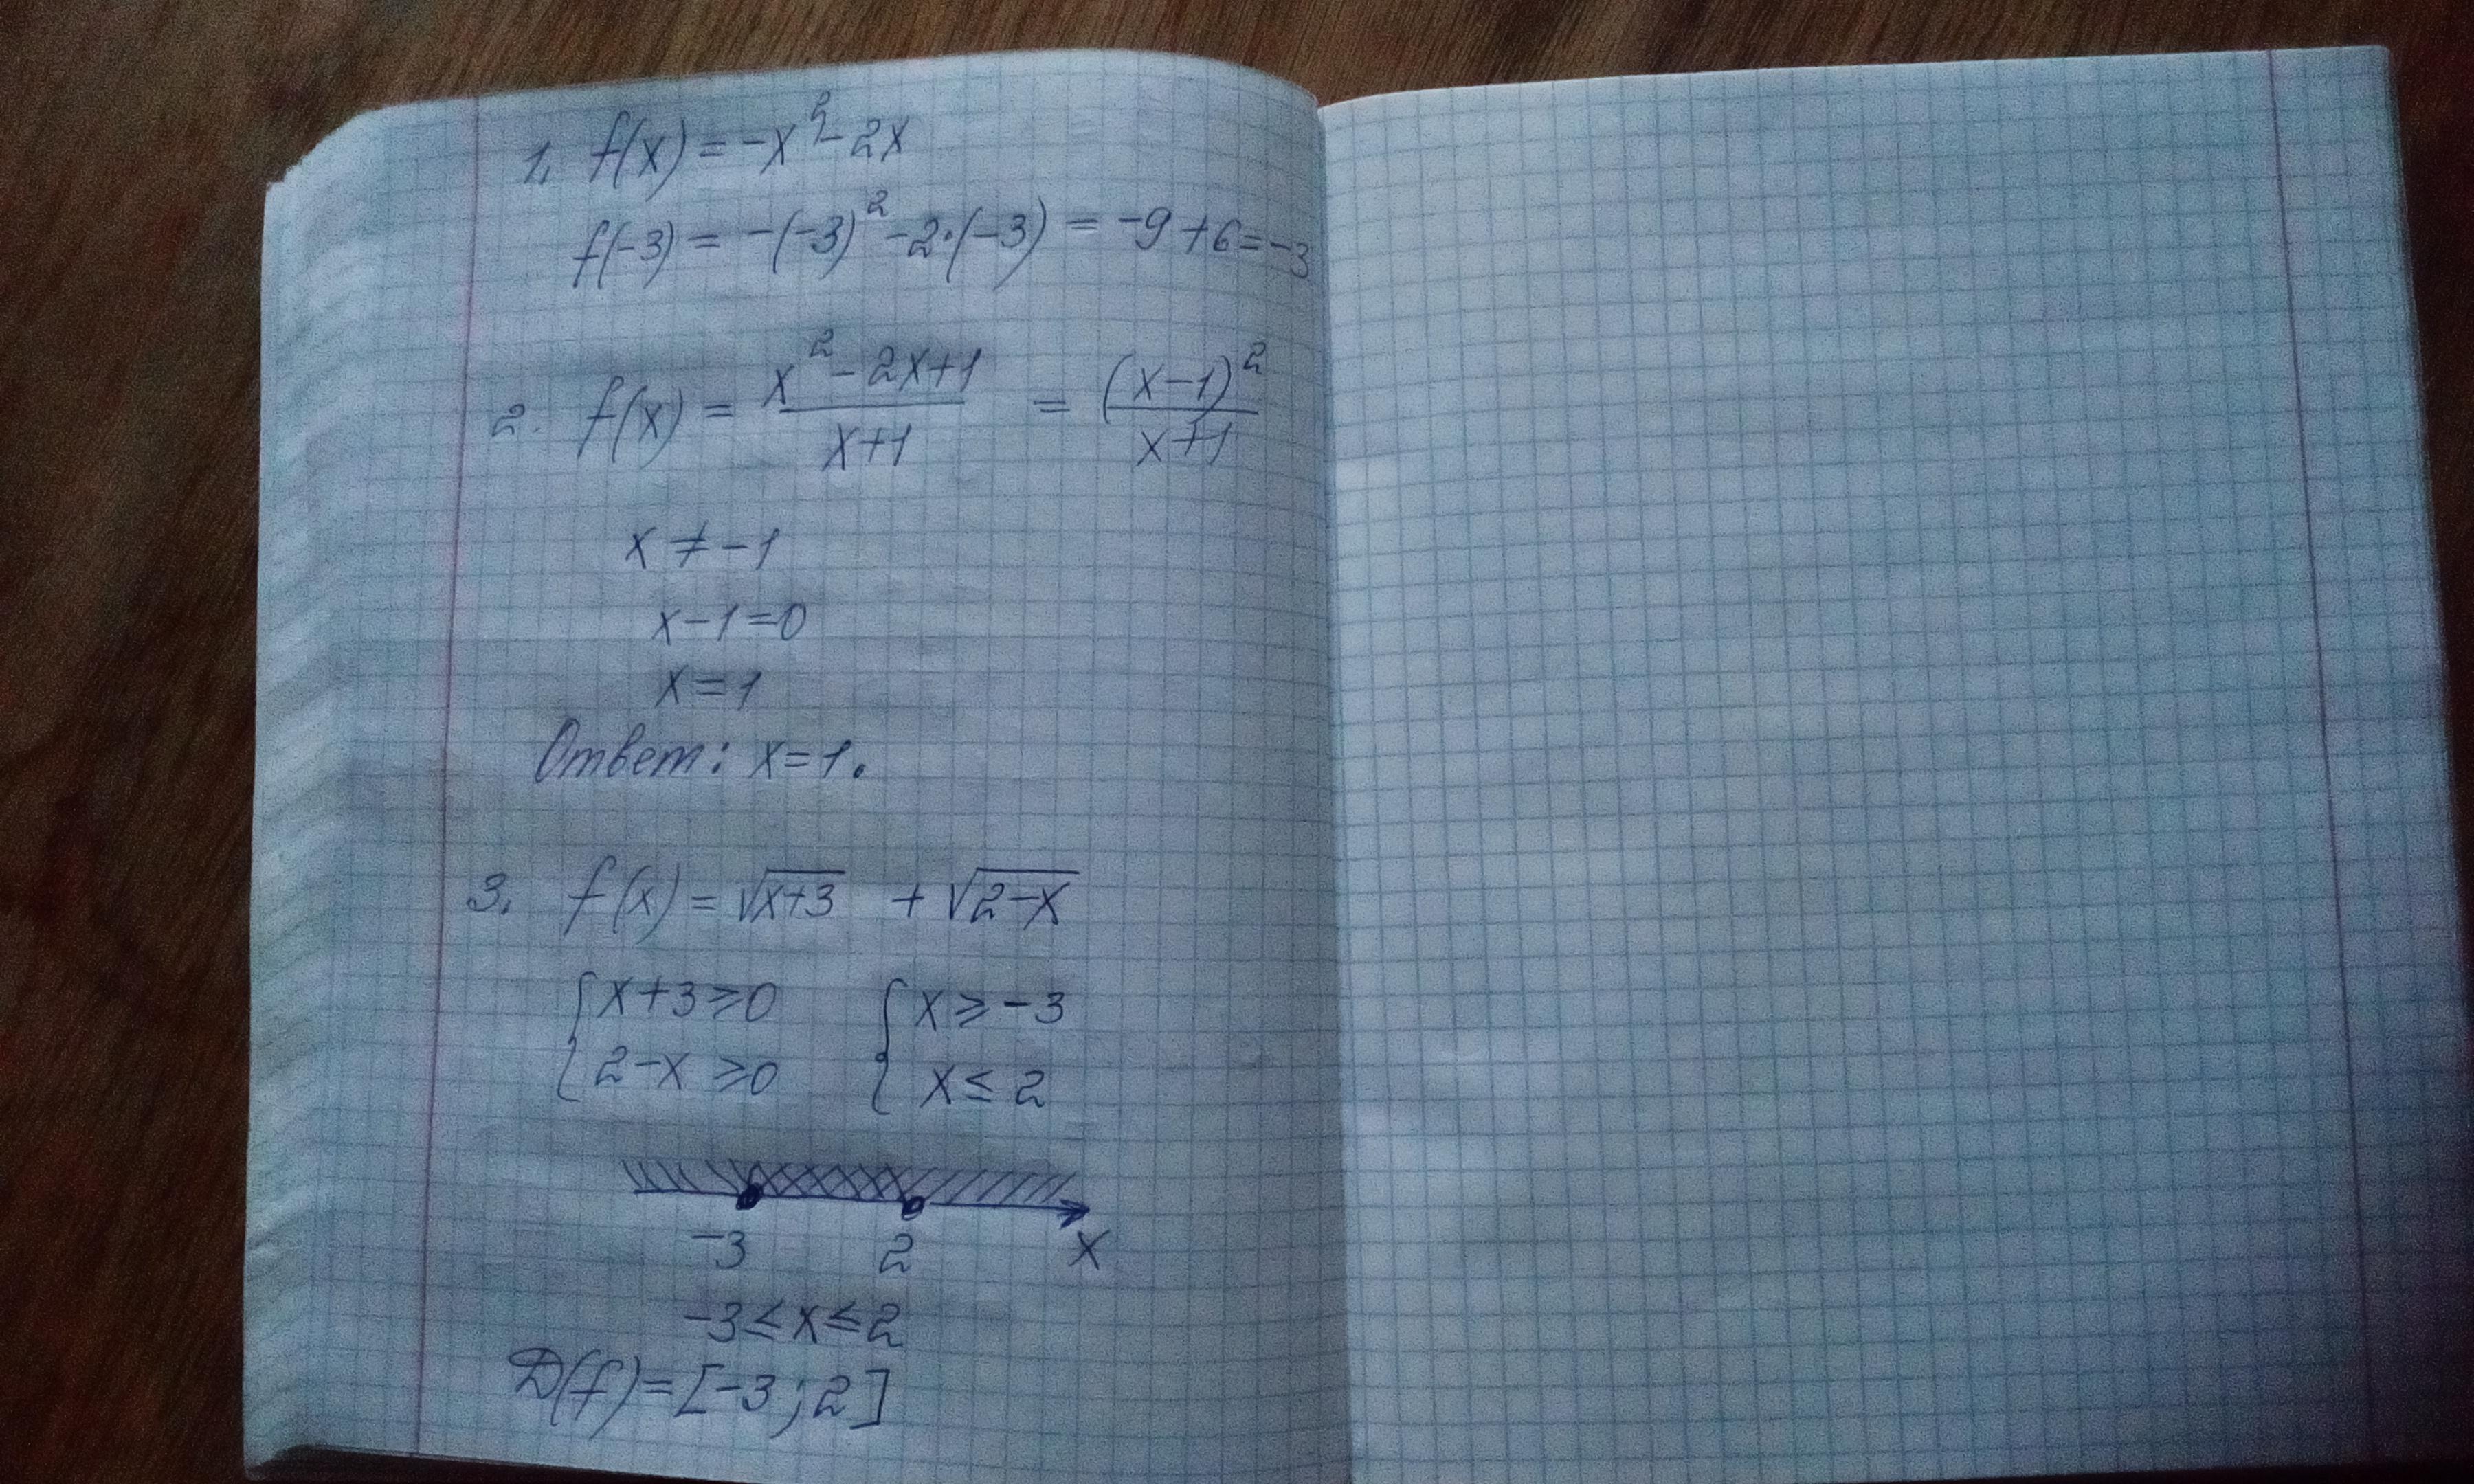 1. f(x) = -x² - 2x
f(-3) = -(-3)² - 2·(-3) = -9 + 6 = -3
2. f(x) = (x² - 2x + 1)/(x + 1) = (x - 1)²/(x + 1)
x ≠ -1
x - 1 = 0
x = 1
Ответ: x = 1.
3. f(x) = √(x+3) + √(2-x)
{ x + 3 ≥ 0 { x ≥ -3
{ 2 - x ≥ 0 { x ≤ 2
-3 2 x
-3 ≤ x ≤ 2
D(f) = [-3; 2]